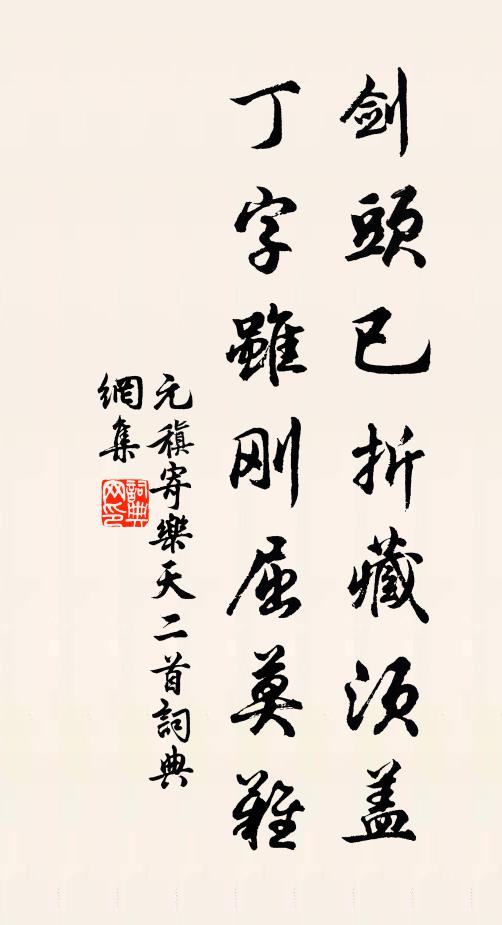 劍頭已折藏須蓋
丁字雖剛屈莫難
元稹寄樂天二首詞典
網集
詞典網印